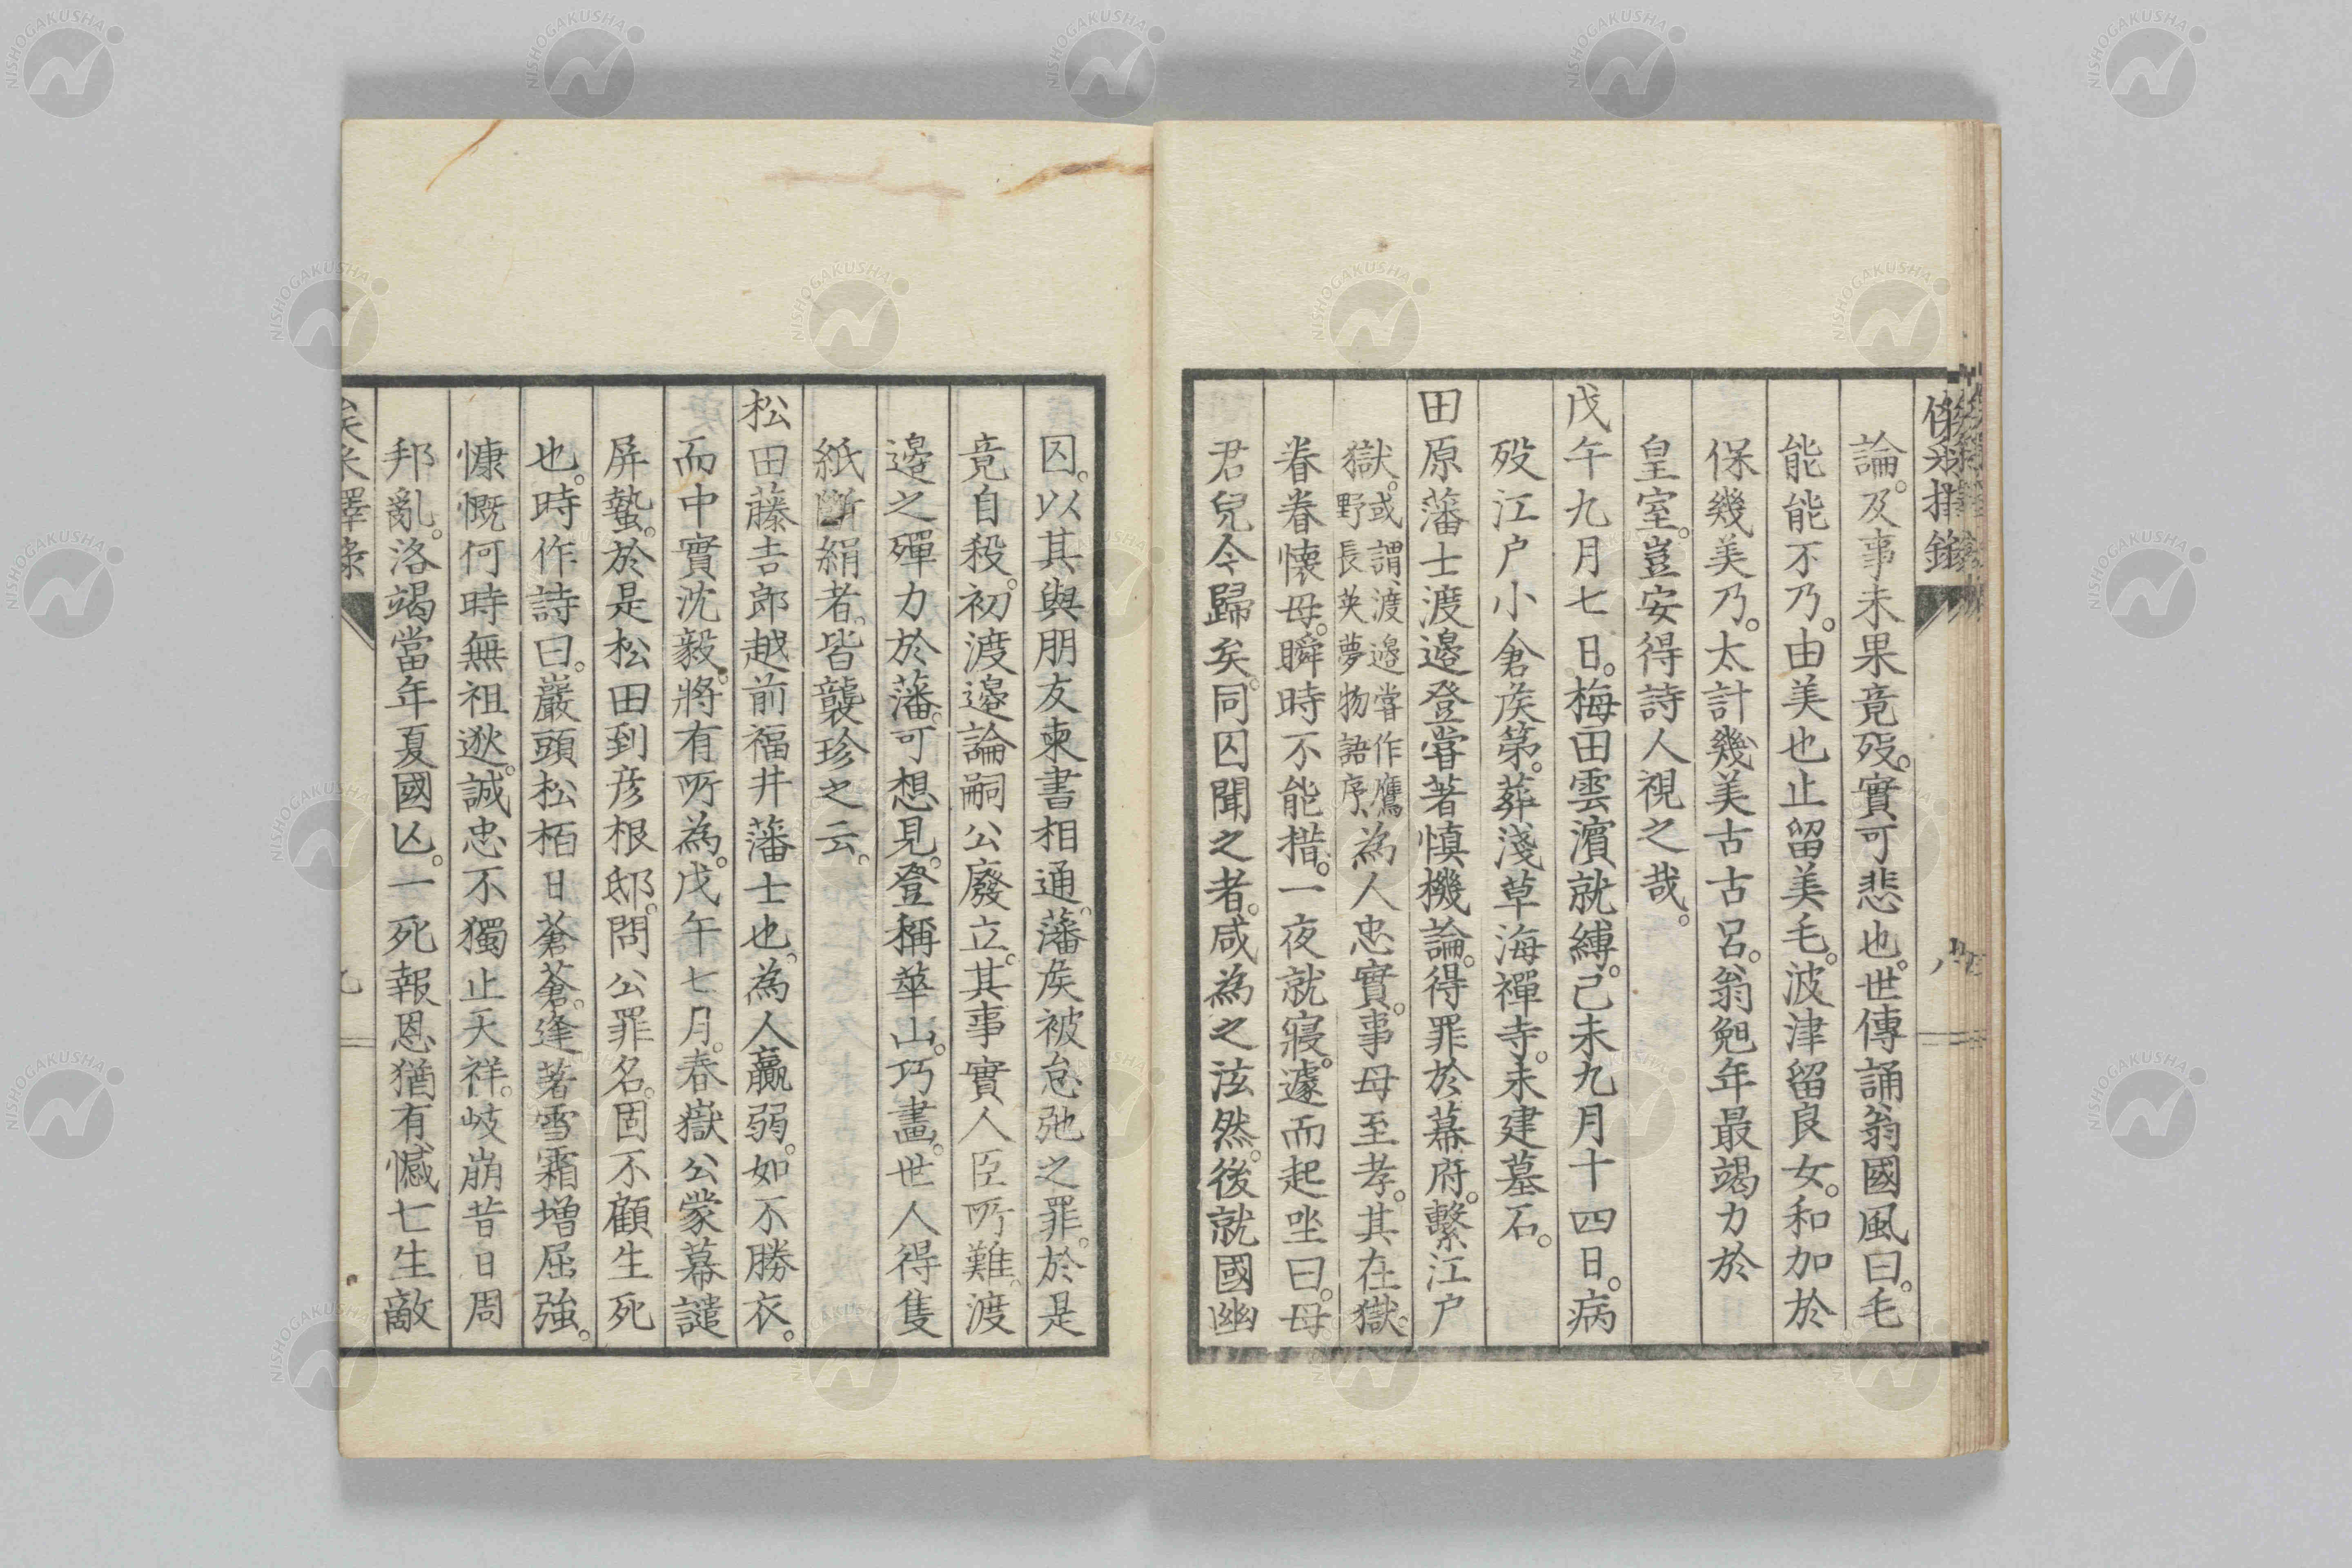 論。及事未果竟歿。實可悲也。世傳誦翁國風曰。毛
能能不乃。由美也止留美毛。波津留良女。和加於
保幾美乃。太計幾美古古呂。翁勉年最竭力於
皇室。豈安得詩人視之哉。
戊午九月七日。梅田雲濱就縛。己未九月十四日。病
歿江户小倉矦第。葬淺草海禪寺。未建墓石。
田原藩士渡邉登嘗著慎機論。得罪於幕府。繫江户
獄。或謂、渡邉嘗作鷹野長英夢物語序、為人忠實。事母至孝。其在獄。
眷眷懐母。瞬時不能措。一夜就寢。遽而起坐曰。母
君兒今歸矣。同囚聞之者。咸為之泫然。後就國幽
囚。以其與朋友柬書相通。藩矦被怠弛之罪。於是
竟自殺。初渡邉論嗣公廢立。其事實人臣所難。渡
邉之殫力於藩。可想見。登稱華山。巧畫。世人得隻
紙斷絹者。皆襲珍之云。
松田藤吉郎越前福井藩士也。為人羸弱。如不勝衣。
而中實沈毅。將有所為。戊午七月。春嶽公蒙幕譴
屏蟄。於是松田到彦根邸。問公罪名。固不顧生死
也。時作詩曰。巖頭松栢日蒼蒼。逢著雪霜增屈強。
慷慨何時無祖逖。誠忠不獨止天祥。岐崩昔日周
邦亂。洛竭當年夏國亾。一死報恩猶有憾七生敵